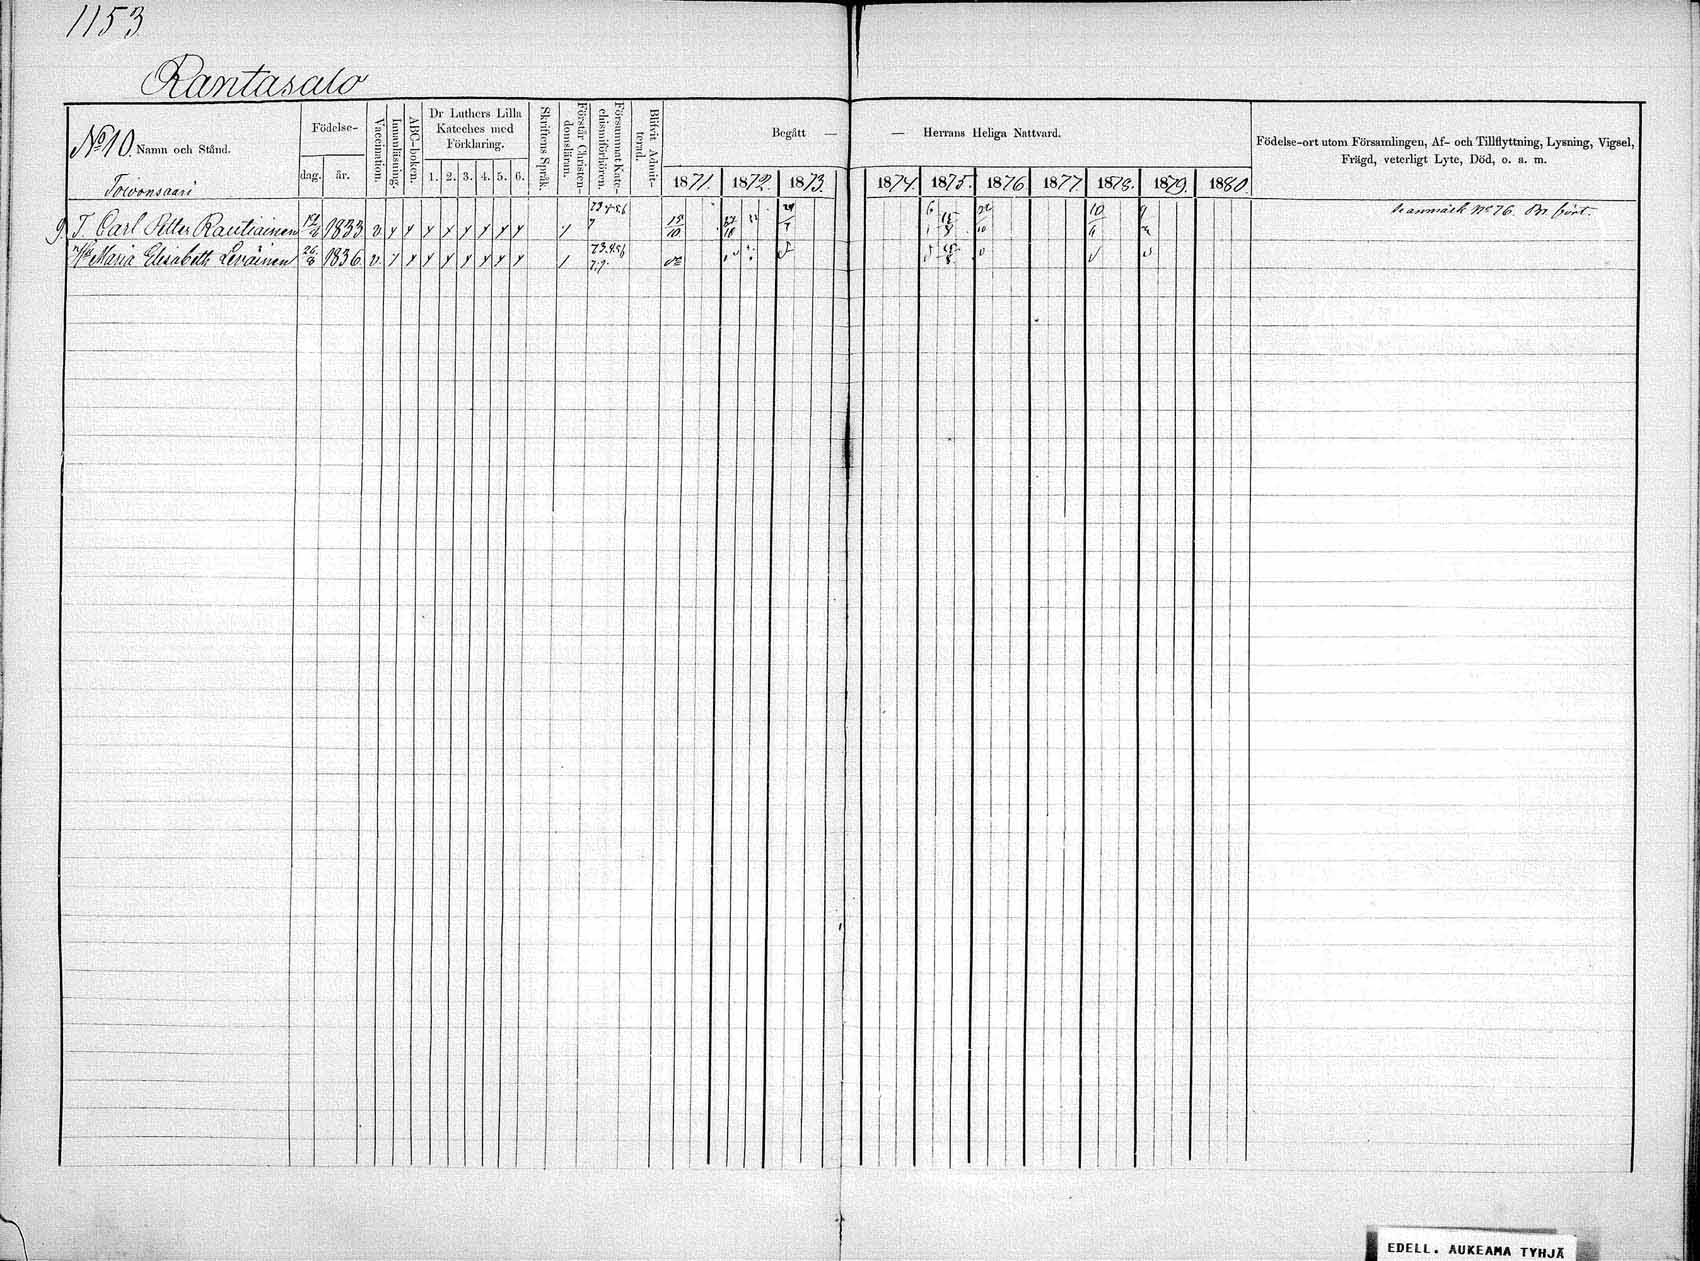 1153
Rantasalo
No 10. Namn och Stånd.
Födelse-
dag. år.
Vaccination.
Innanläsning.
ABC-boken.
Dr Luthers Lilla
Kateches med
Förklaring.
1. 2. 3. 4. 5. 6.
Skriftens Språk.
Förstår Christen-
domsläran.
Försummat Kate-
chismiförhören.
Blifvit Admit-
terad.
Begått — — Herrans Heliga Nattvard.
1871. 1872. 1873. 1874. 1875. 1876 1877 1878. 1879. 1880.
Födelse-ort utom Församlingen, Af- och Tillflyttning, Lysning, Vigsel,
Frägd, veterligt Lyte, Död, o. a. m.
Toivonsaari
9. T. Carl Petter Rautiainen 1833 v x x x x x x x x 15/10
Maria Elisabeth Leväinen 26/8 1836. v. x x x x x x x x
anmärk No 76.
EDELL. AUKEAMA TYHJÄ